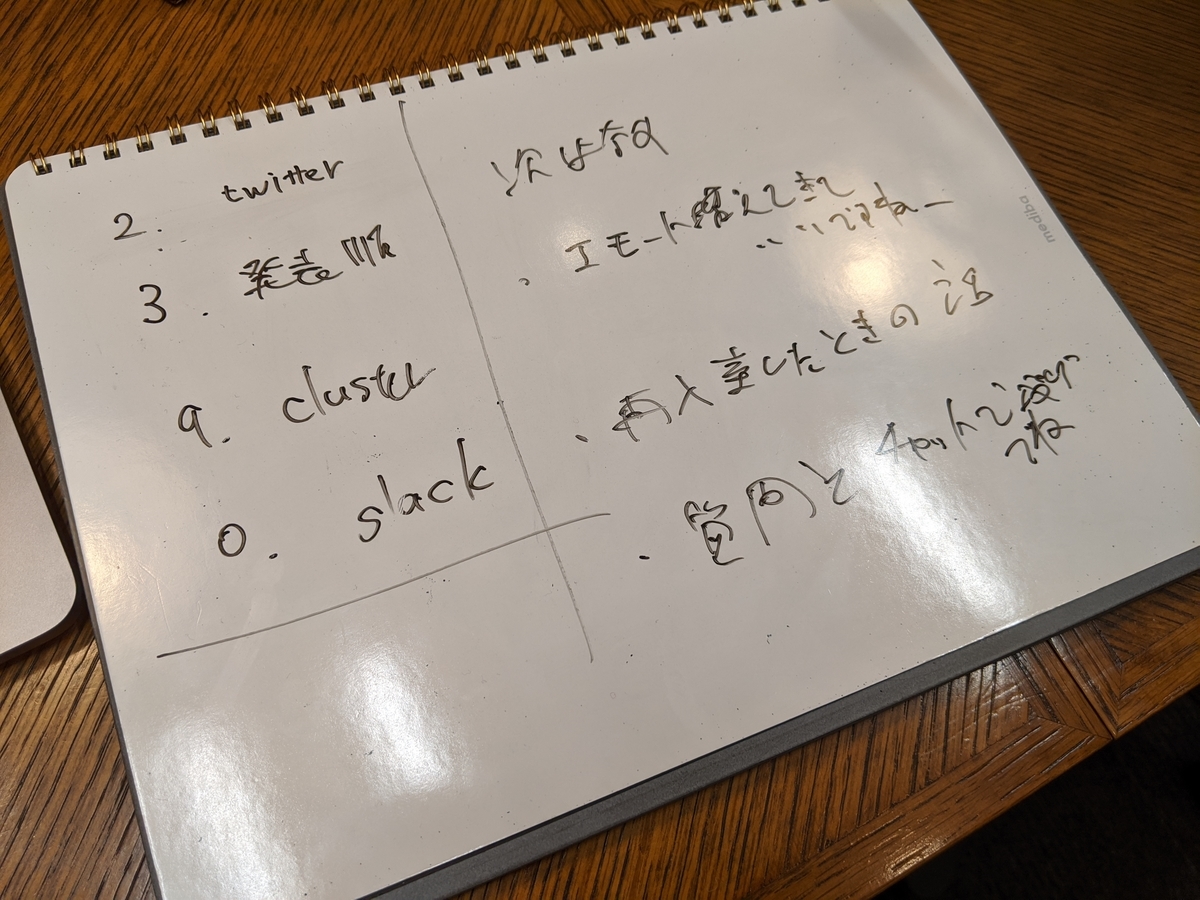 2. twitter
3. 発表順
9. cluster
0. slack
次は
・エモート増えてきて
いいですねー
・再入室したときの話
・質問と チャットで
ね
mediba